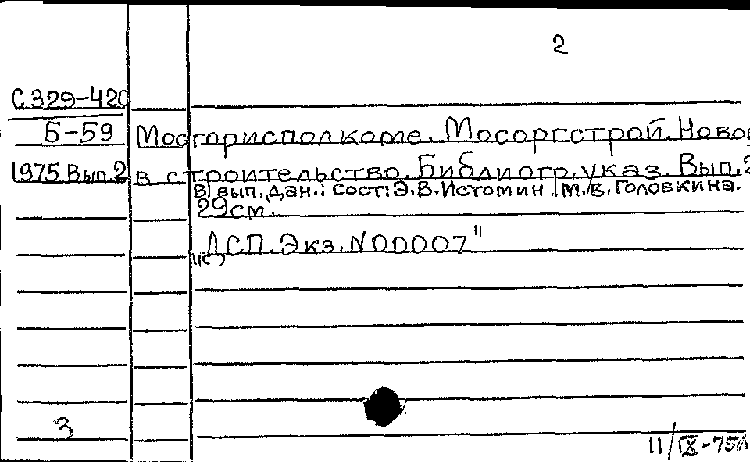 2
С329-420
Б-59 Мосгорисполком. Мосоргстрой. Ново
1975 Вып.2 в строительство. Библиогр. указ. Вып. 2
В вып. дан.: сост: Э.В. Истомин. М.В. Головкина.
29 см.
ДСП. Экз. N 00007"
3
11/IX-75